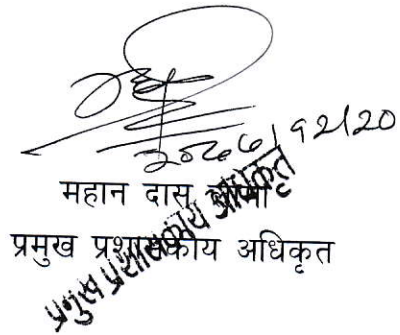 २०७७/१२/२०
महान दास
प्रमुख प्रशासकीय अधिकृत
प्रमुख प्रशासकीय अधिकृत